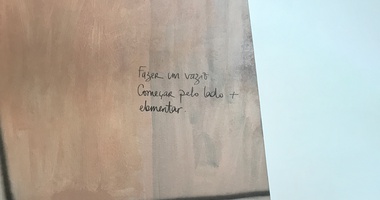 Fazer um vazio.
Começar pelo lado +
elementar.